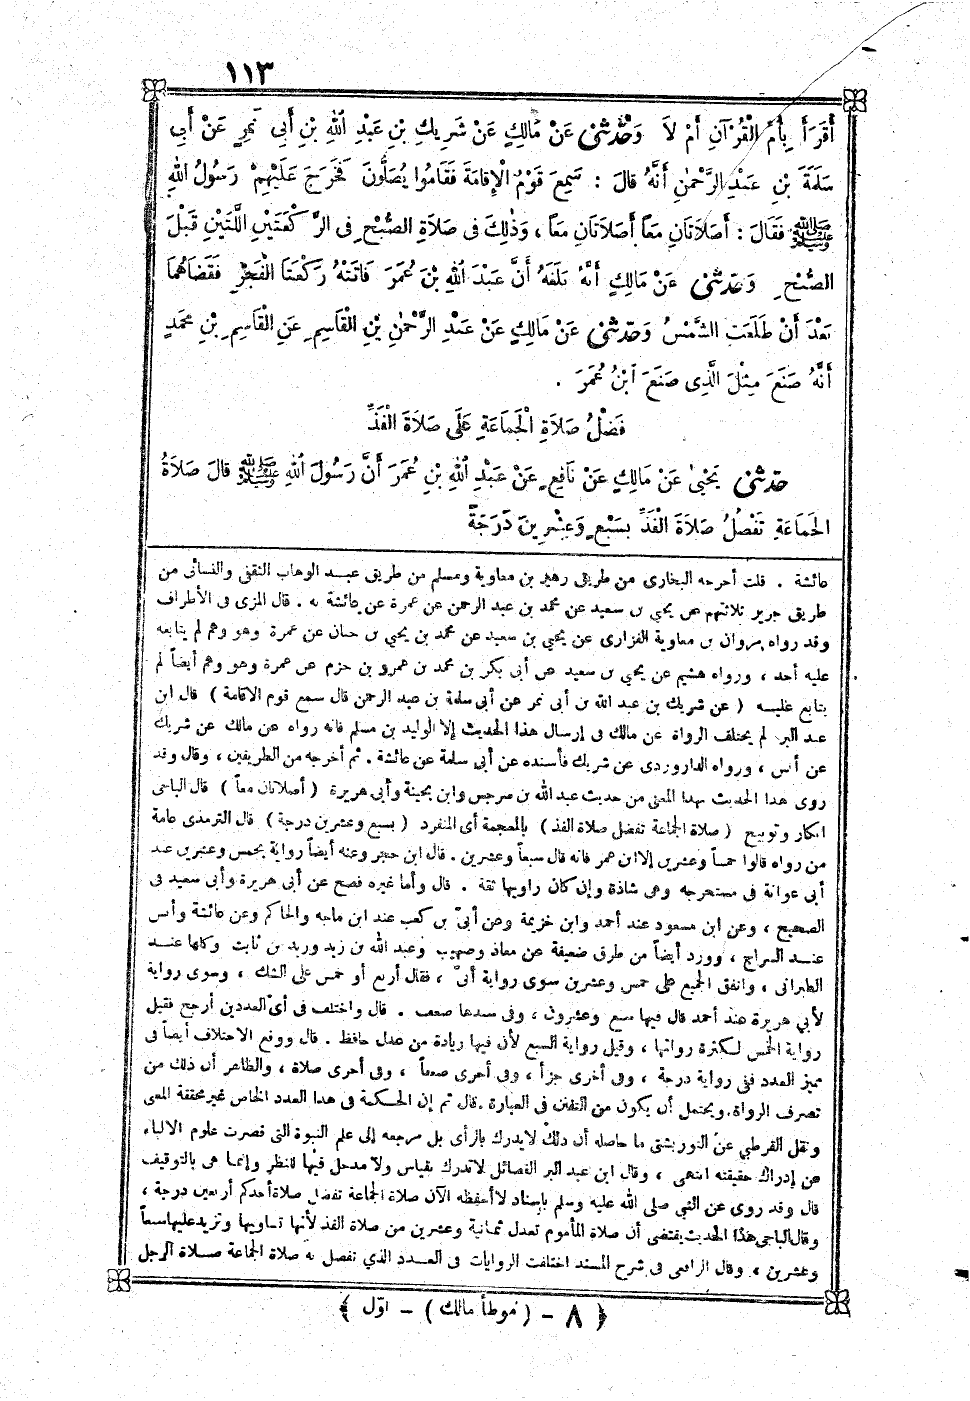 ١١٣
أَقَرَأَ بِأُمِّ الْقُرْآنِ أَمْ لَا وَحَدَّثَنِى عَنْ مَالِكٍ عَنْ شَرِيكِ بْنِ عَبْدِ اللهِ بْنِ أَبِى نَمِرٍ عَنْ أَبِى
سَلَمَةَ بْنِ عَبْدِ الرَّحْمٰنِ أَنَّهُ قَالَ : سَمِعَ قَوْمٌ الْإِقَامَةَ فَقَامُوا يُصَلُّونَ فَخَرَجَ عَلَيْهِمْ رَسُولُ اللهِ
ﷺ فَقَالَ : أَصَلَاتَانِ مَعًا أَصَلَاتَانِ مَعًا ، وَذٰلِكَ فِى صَلَاةِ الصُّبْحِ فِى الرَّكْعَتَيْنِ اللَّتَيْنِ قَبْلَ
الصُّبْحِ وَحَدَّثَنِى عَنْ مَالِكٍ أَنَّهُ بَلَغَهُ أَنَّ عَبْدَ اللهِ بْنَ عُمَرَ فَاتَتْهُ رَكْعَتَا الْفَجْرِ فَقَضَاهُمَا
بَعْدَ أَنْ طَلَعَتِ الشَّمْسُ وَحَدَّثَنِى عَنْ مَالِكٍ عَنْ عَبْدِ الرَّحْمٰنِ بْنِ الْقَاسِمِ عَنِ الْقَاسِمِ بْنِ مُحَمَّدٍ
أَنَّهُ صَنَعَ مِثْلَ الَّذِى صَنَعَ ابْنُ عُمَرَ .
فَضْلُ صَلَاةِ الْجَمَاعَةِ عَلَى صَلَاةِ الْفَذِّ
حَدَّثَنِى يَحْيٰى عَنْ مَالِكٍ عَنْ نَافِعٍ عَنْ عَبْدِ اللهِ بْنِ عُمَرَ أَنَّ رَسُولَ اللهِ ﷺ قَالَ صَلَاةُ
الْجَمَاعَةِ تَفْضُلُ صَلَاةَ الْفَذِّ بِسَبْعٍ وَعِشْرِينَ دَرَجَةً
عائشة . قلت أخرجه البخارى من طريق زهير بن معاوية ومسلم من طريق عبد الوهاب الثقفى والنسائى من
طريق جرير ثلاثتهم عن يحيى بن سعيد عن محمد بن عبد الرحمن عن عمرة عن عائشة به . قال المزى فى الأطراف
وقد رواه مروان بن معاوية الفزارى عن يحيى بن سعيد عن محمد بن يحيى بن حبان عن عمرة وهو وهم لم يتابعه
عليه أحد ، ورواه هشيم عن يحيى بن سعيد عن أبى بكر بن محمد بن عمرو بن حزم عن عمرة وهو وهم أيضاً لم
يتابع عليه ( عن شريك بن عبد الله بن أبى نمر عن أبى سلمة بن عبد الرحمن قال سمع قوم الاقامة ) قال ابن
عبد البر لم يختلف الرواة عن مالك فى إرسال هذا الحديث إلا الوليد بن مسلم فانه رواه عن مالك عن شريك
عن أنس ، ورواه الداروردى عن شريك فأسنده عن أبى سلمة عن عائشة . ثم أخرجه من الطريقين ، وقال وقد
روى هذا الحديث بهذا المعنى من حديث عبد الله بن سرجس وابن بحينة وأبى هريرة ( أصلاتان معاً ) قال الباجى
انكار وتوبيخ ( صلاة الجماعة تفضل صلاة الفذ ) بالمعجمة أى المنفرد ( بسبع وعشرين درجة ) قال الترمذى عامة
من رواه قالوا خمساً وعشرين إلا ابن عمر فانه قال سبعاً وعشرين . قال ابن حجر وعنه أيضاً رواية بخمس وعشرين عند
أبى عوانة فى مستخرجه وهى شاذة وإن كان راويها ثقة . قال وأما غيره فصح عن أبى هريرة وأبى سعيد فى
الصحيح ، وعن ابن مسعود عند أحمد وابن خزيمة وعن أبىّ بن كعب عند ابن ماجه والحاكم وعن عائشة وأنس
عند السراج ، وورد أيضاً من طرق ضعيفة عن معاذ وصهيب وعبد الله بن زيد وزيد بن ثابت وكلها عند
الطبرانى ، واتفق الجميع على خمس وعشرين سوى رواية أبىّ ، فقال أربع أو خمس على الشك ، وسوى رواية
لأبى هريرة عند أحمد قال فيها سبع وعشرون ، وفى سندها ضعف . قال واختلف فى أىّ العددين أرجح فقيل
رواية الخمس لكثرة رواتها ، وقيل رواية السبع لأن فيها زيادة من عدل حافظ . قال ووقع الاختلاف أيضاً فى
مميز العدد ففى رواية درجة ، وفى أخرى جزأ ، وفى أخرى ضعفاً ، وفى أخرى صلاة ، والظاهر أن ذلك من
تصرف الرواة، ويحتمل أن يكون من التفنن فى العبارة . قال ثم إن الحكمة فى هذا العدد الخاص غير محققة المعنى
ونقل القرطبى عن التوربشتى ما حاصله أن ذلك لايدرك بالرأى بل مرجعه إلى علم النبوة التى قصرت علوم الالباء
عن إدراك حقيقته انتهى ، وقال ابن عبد البر الفضائل لاتدرك بقياس ولا مدخل فيها للنظر وإنما هى بالتوقيف
قال وقد روى عن النبى صلى الله عليه وسلم بإسناد لا أحفظه الآن صلاة الجماعة تفضل صلاة أحدكم أربعين درجة ،
وقال الباجى هذا الحديث يقتضى أن صلاة المأموم تعدل ثمانية وعشرين من صلاة الفذ لأنها تساويها وتزيد عليها سبعاً
وعشرين ، وقال الرافعى فى شرح المسند اختلفت الروايات فى العدد الذي تفضل به صلاة الجماعة صلاة الرجل
﴿ ٨ - ( موطأ مالك ) - اوّل ﴾